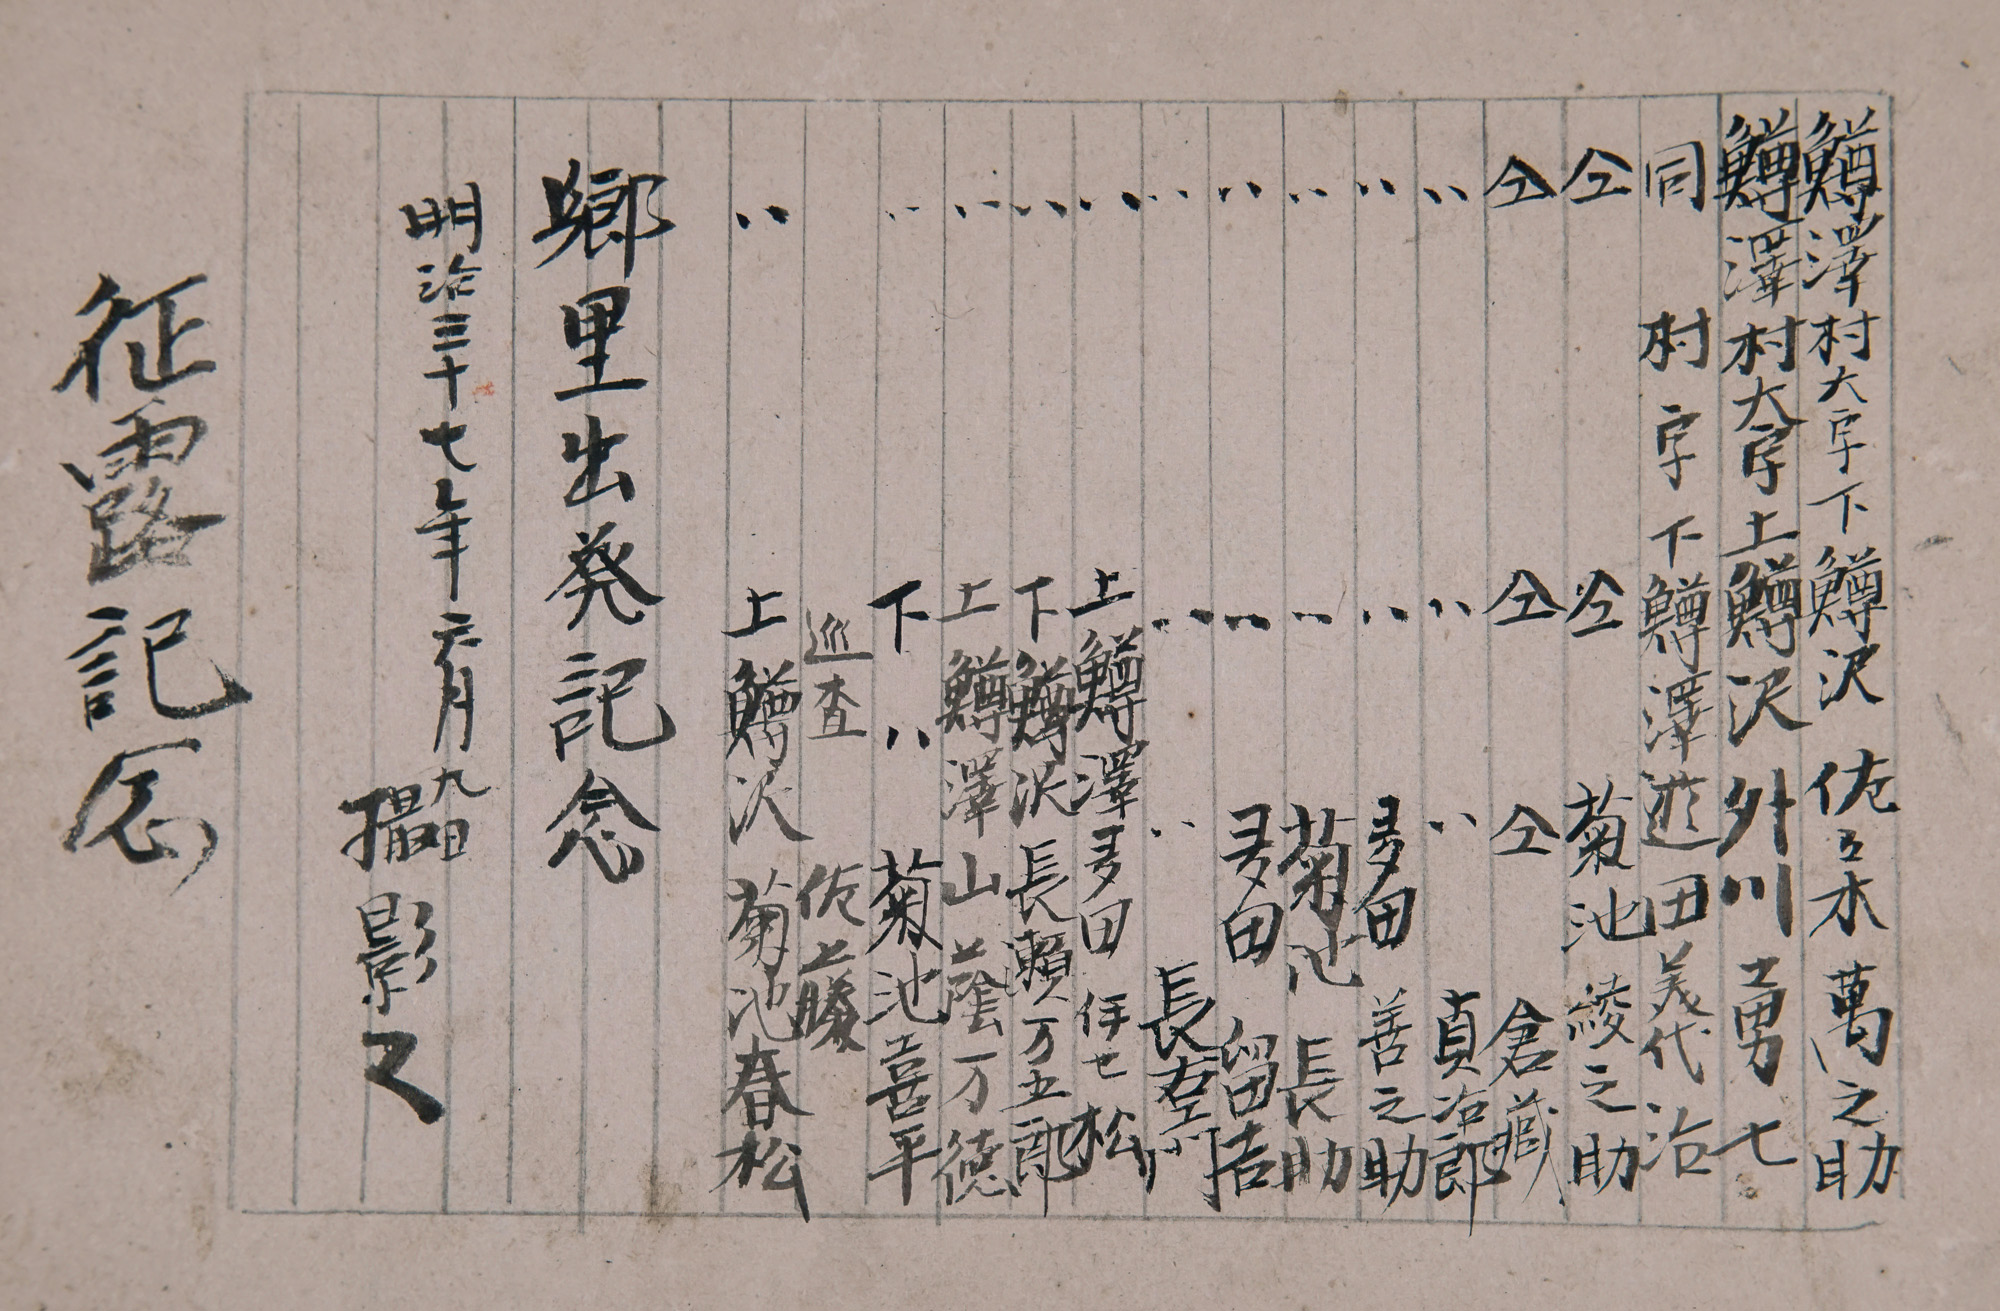 鱒澤村大字下鱒沢 佐々木萬之助
鱒澤村大字上鱒沢 外川勇七
同村字下鱒澤 遊田義代治
仝 仝 菊池綾之助
仝 仝 仝 倉藏
〃 〃 〃 貞治郎
〃 〃 多田善之助
〃 〃 菊池長助
〃 〃 多田留吉
〃 〃 〃 長右エ門
〃 上鱒澤 多田伊七松
〃 下鱒沢 長瀬万五郎
〃 上鱒澤 山蔭万德
〃 下〃 菊池喜平
巡査 佐藤
〃 上鱒沢 菊池春松
郷里出発記念
明治三十七年六月九日
撮影之
征露記念